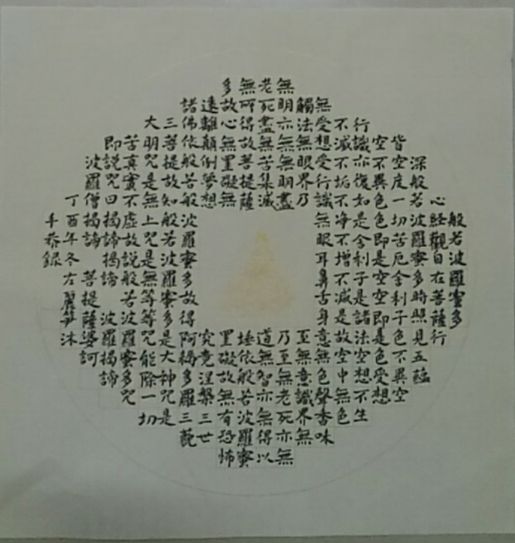 般若波羅蜜多
心經觀自在菩薩行
深般若波羅蜜多時照見五蘊
皆空度一切苦厄舍利子色不異空
空不異色色即是空空即是色受想
行識亦復如是舍利子是諸法空想不生
不滅不垢不淨不增不減是故空中無色
無受想受行識無眼耳鼻舌身意無色聲香味
觸法無眼界乃至無意識界無
無明亦無無明盡乃至無老死亦無
老死盡無苦集滅道無智亦無得以
無所得故菩提薩埵依般若波羅蜜
多故心無罣礙無罣礙故無有恐怖
遠離顛倒夢想究竟涅槃三世
諸佛依般若般波羅蜜多故得阿耨多羅三藐
三菩提故知般若波羅蜜多是大神咒是
大明咒是無上咒是無等等咒能除一切
苦真實不虛故說般若波羅蜜多咒
即說咒曰揭諦揭諦 波羅揭諦
波羅僧揭諦 菩提薩婆訶
丁酉年冬 沐
手恭錄